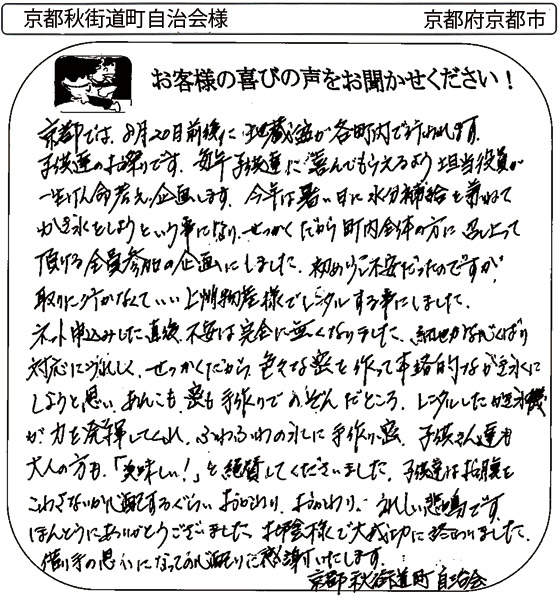 京都秋街道町自治会様
京都府京都市
お客様の喜びの声をお聞かせください！
京都では、8月20日前後に地蔵盆が各町内で行われます。
子供達のお祭りです。毎年子供達に喜んでもらえるよう担当役員が
一生けん命考え企画します。今年は暑い日に水分補給を兼ねて
かき氷をしようという事になり、せっかくだから町内全体の方に召し上って
頂ける全員参加の企画にしました。初めらで不安だったのですが、
取りに行かなくていい上州物産様でレンタルする事にしました。
ネット申込みした直後、不安は完全に無くなりました。細やかな心くばり
対応にうれしく、せっかくだから、色々な蜜を作って本格的なかき氷に
しようと思い、あんこも、蜜も手作りでのぞんだところ、レンタルしたかき氷機
が力を発揮してくれ、ふわふわの氷に手作り蜜、子供さん達も
大人の方も、「美味しい！」と絶賛してくださいました。子供達はお腹を
こわさないか心配するぐらいおかわり、おかわり、うれしい悲鳴です。
ほんとうにありがとうございました。お陰様で大成功に終わりました。
借り手の思いになっての心配りに感謝いたします。
京都秋街道町自治会